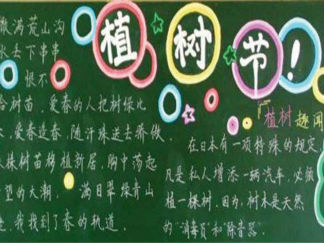 植树节！
撒满荒山沟
水丢下串串
恨不
给树苗，爱春的人把树绿比
爱春造春，随汗珠送去骄傲
株树苗移植新居，胸中荡起
望的大潮，满目翠绿青山
我找到了春的轨道
植树趣闻
在日本有一项特殊的规定
凡是私人增添一辆汽车，必须
植一棵树。因为，树木是天然
的“消毒员”和“除尘器”